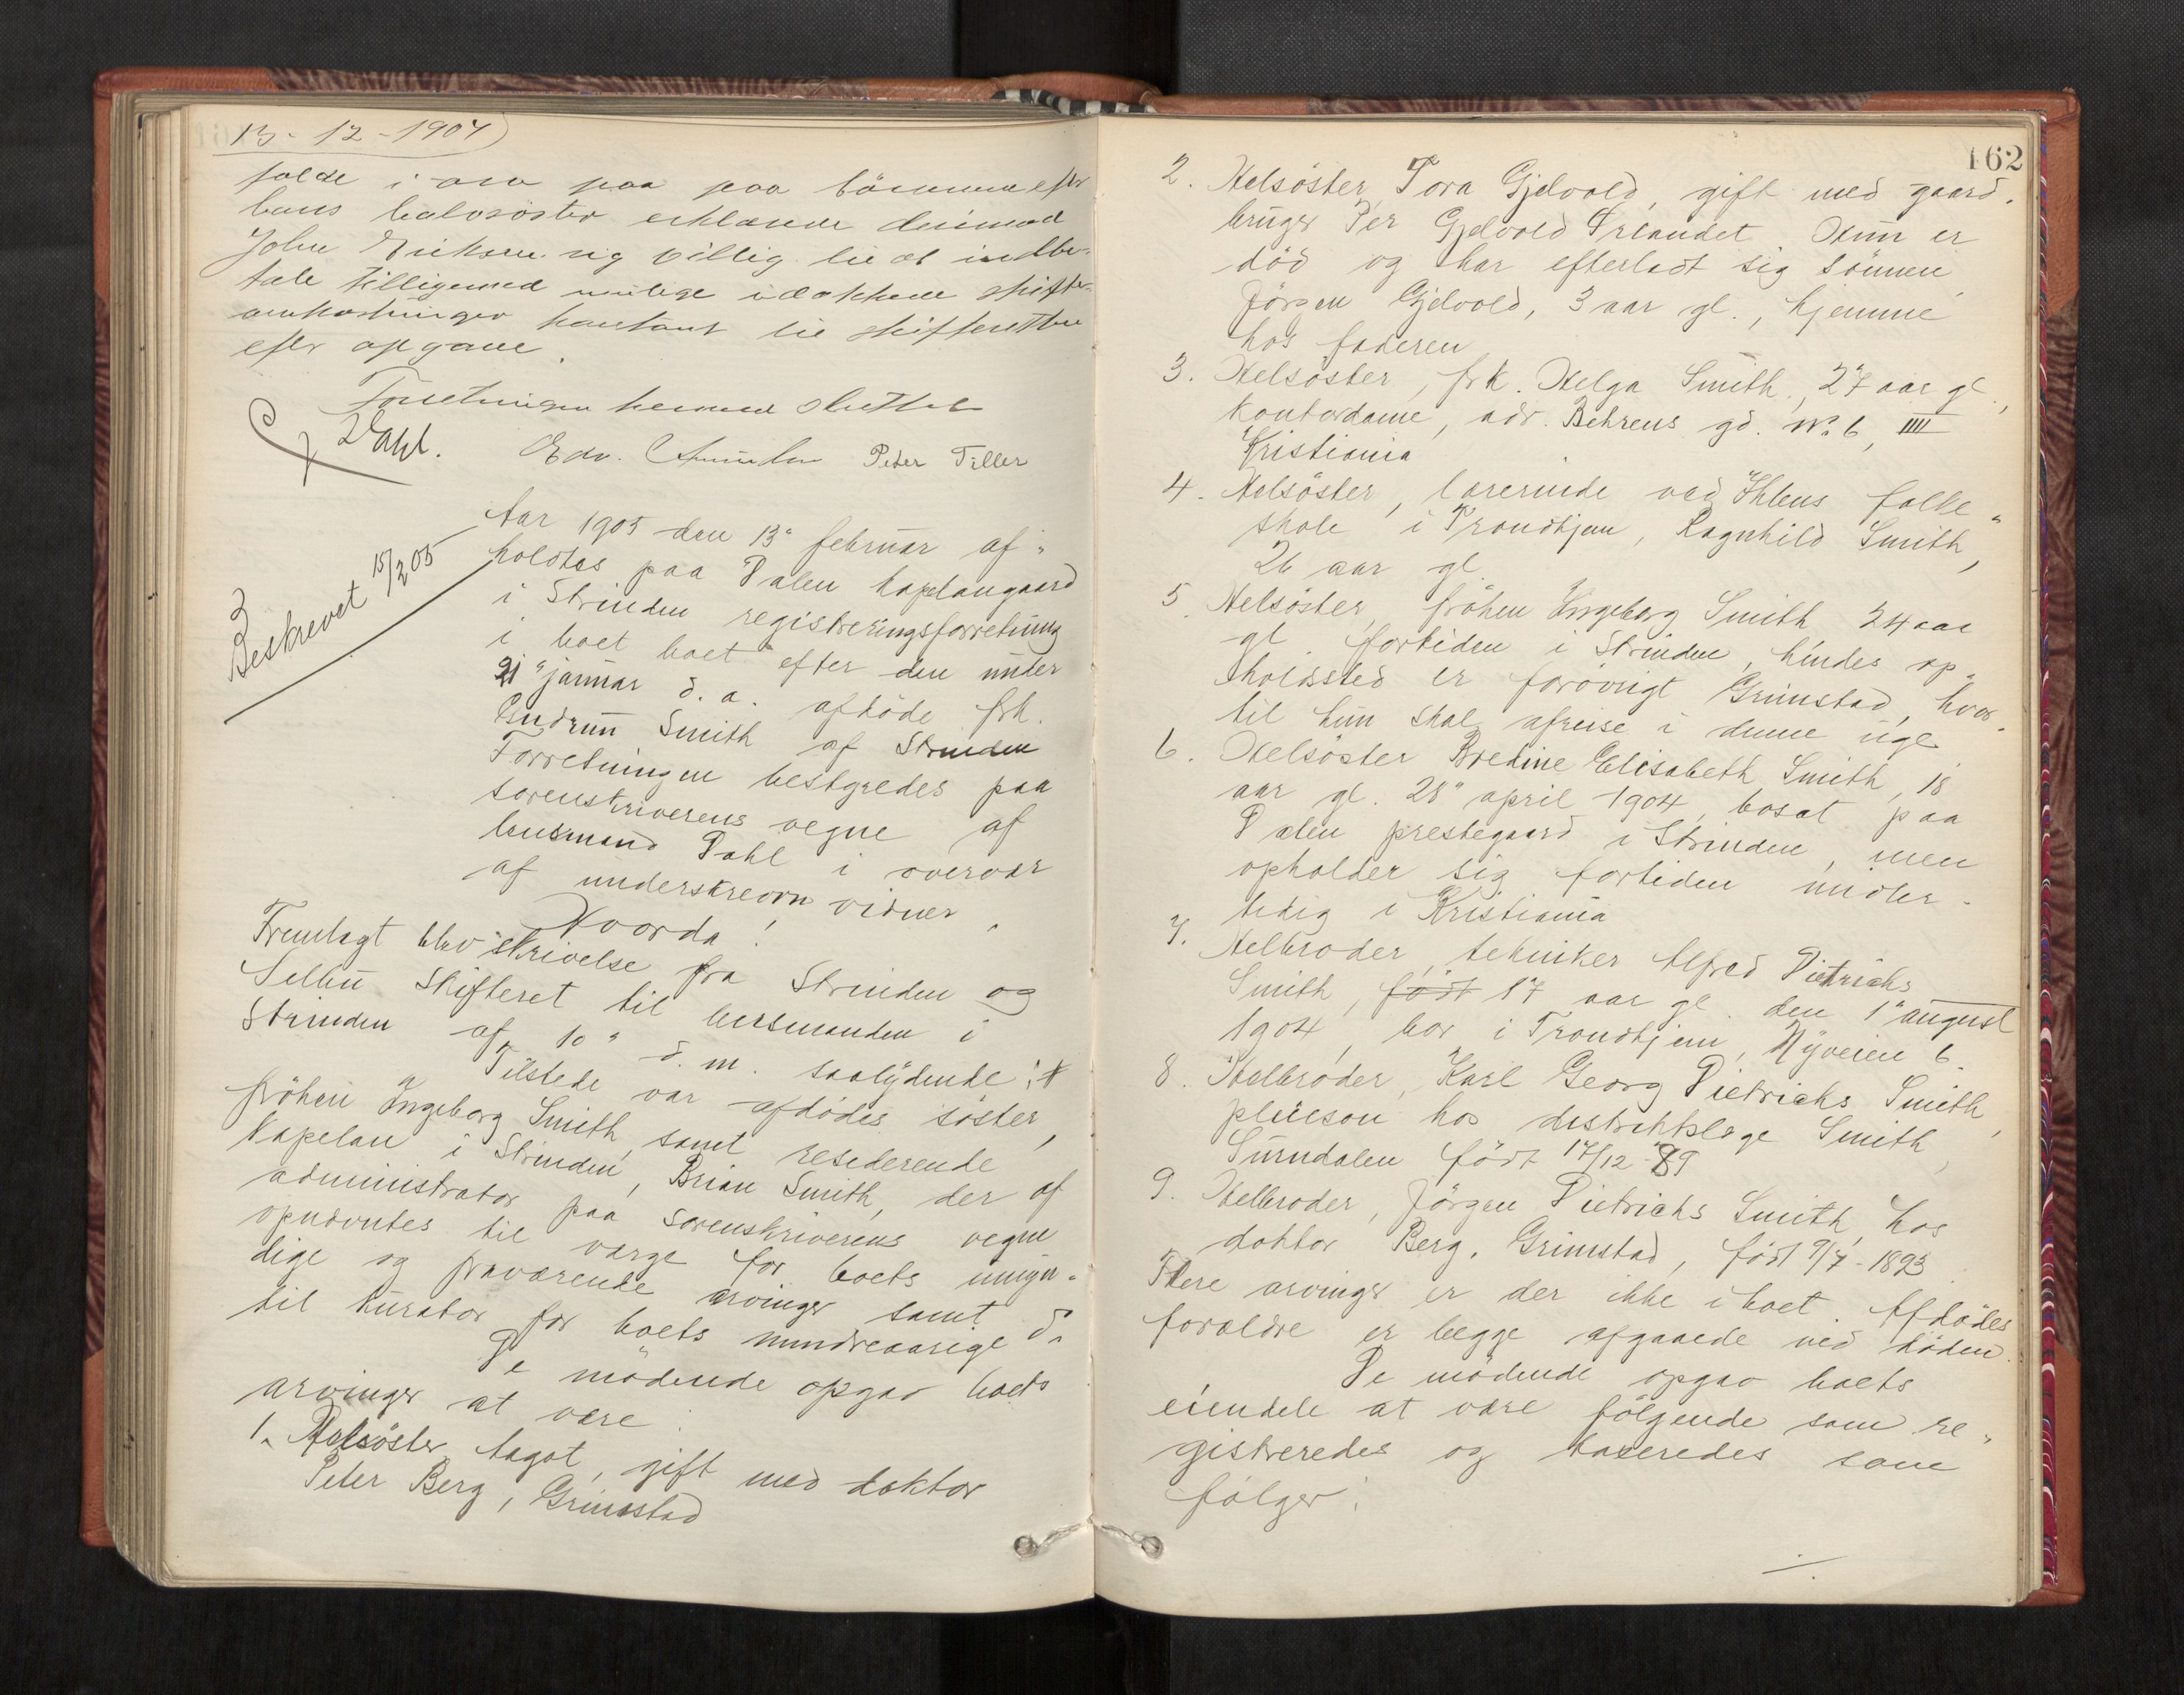 13-12-1904
falde i arv paa paa börnene efter
hans halvsöster erklærer derimod
John Eriksen sig villig til at indbe-
tale tilligemed mulige udækkede skifte-
omkostninger kontant til skifteretten
efter opgave.
Forretningen hermed sluttet
Dahl. Edv. Peter Tiller
3
Beskrevet 15/2 05
Aar 1905 den 13" februar af-
holdtes paa Dalen kapelangaard
i Strinden registreringsforretning
i boet boet efter den under
21" januar d. a. afdöde frk.
Gudrun Smith af Strinden
Forretningen bestyredes paa
sorenskriverens vegne af
lensmand Dahl i overvær
af underskrevn vidner.
Hvorda!
Fremlagt blev skrivelse fra Strinden og
Selbu Skifteret til lensmanden i
Strinden af 10" d. m. saalydende:
Tilstede var afdödes söster,
fröken Ingeborg Smith, samt residerende
kapelan i Strinden, Brian Smith, der af
administrator paa sorenskriverens vegne
opnævntes til værge for boets umyn-
dige og fraværende arvinger samt
til kurator for boets mindreaarige do
De mödende opgav boets
arvinger at være
1. Helsöster Aagot, gift med doktor
Peter Berg, Grimstad
162
2. Helsöster, Tora Gjelvold, gift med gaard-
bruger Per Gjelvold Ørlandet. Hun er
död og har efterladt sig sönnen
Jörgen Gjelvold, 3 aar gl., hjemme
hos faderen
3. Helsöster, frk. Helga Smith, 27 aar gl.,
kontordame, adr. Behrens gd. No 6, IIII
Kristiania
4. Helsöster, lærerinde ved Ihlens folke-
skole i Trondhjem, Ragnhild Smith,
26 aar gl
5 Helsöster, fröken Ingeborg Smith 24 aar
gl fortiden i Strinden, hendes op-
holdssted er forövrigt Grimstad, hvor-
til hun skal afreise i denne uge
6. Helsöster Bredine Elisabeth Smith, 18
aar gl. 28" april 1904, bosat paa
Dalen prestegaard i Strinden, men
opholder sig fortiden midler-
tidig i Kristiania
7. Helbroder, tekniker Alfred Dietrichs
Smith, födt 17 aar gl. den 1" august
1904, bor i Trondhjem, Nyveien 6.
8. Helbroder, Karl Georg Dietrichs Smith,
pleieson hos distriktslæge Smith,
Surndalen födt 17/12-89
9. Helbroder, Jörgen Dietrichs Smith, hos
doktor Berg, Grimstad, födt 9/7-1893
Flere arvinger er der ikke i boet. Afdödes
forældre er begge afgaaede ved döden.
De mödende opgav boets
eiendele at være fölgende som re-
gistreredes og taxeredes som
fölger: